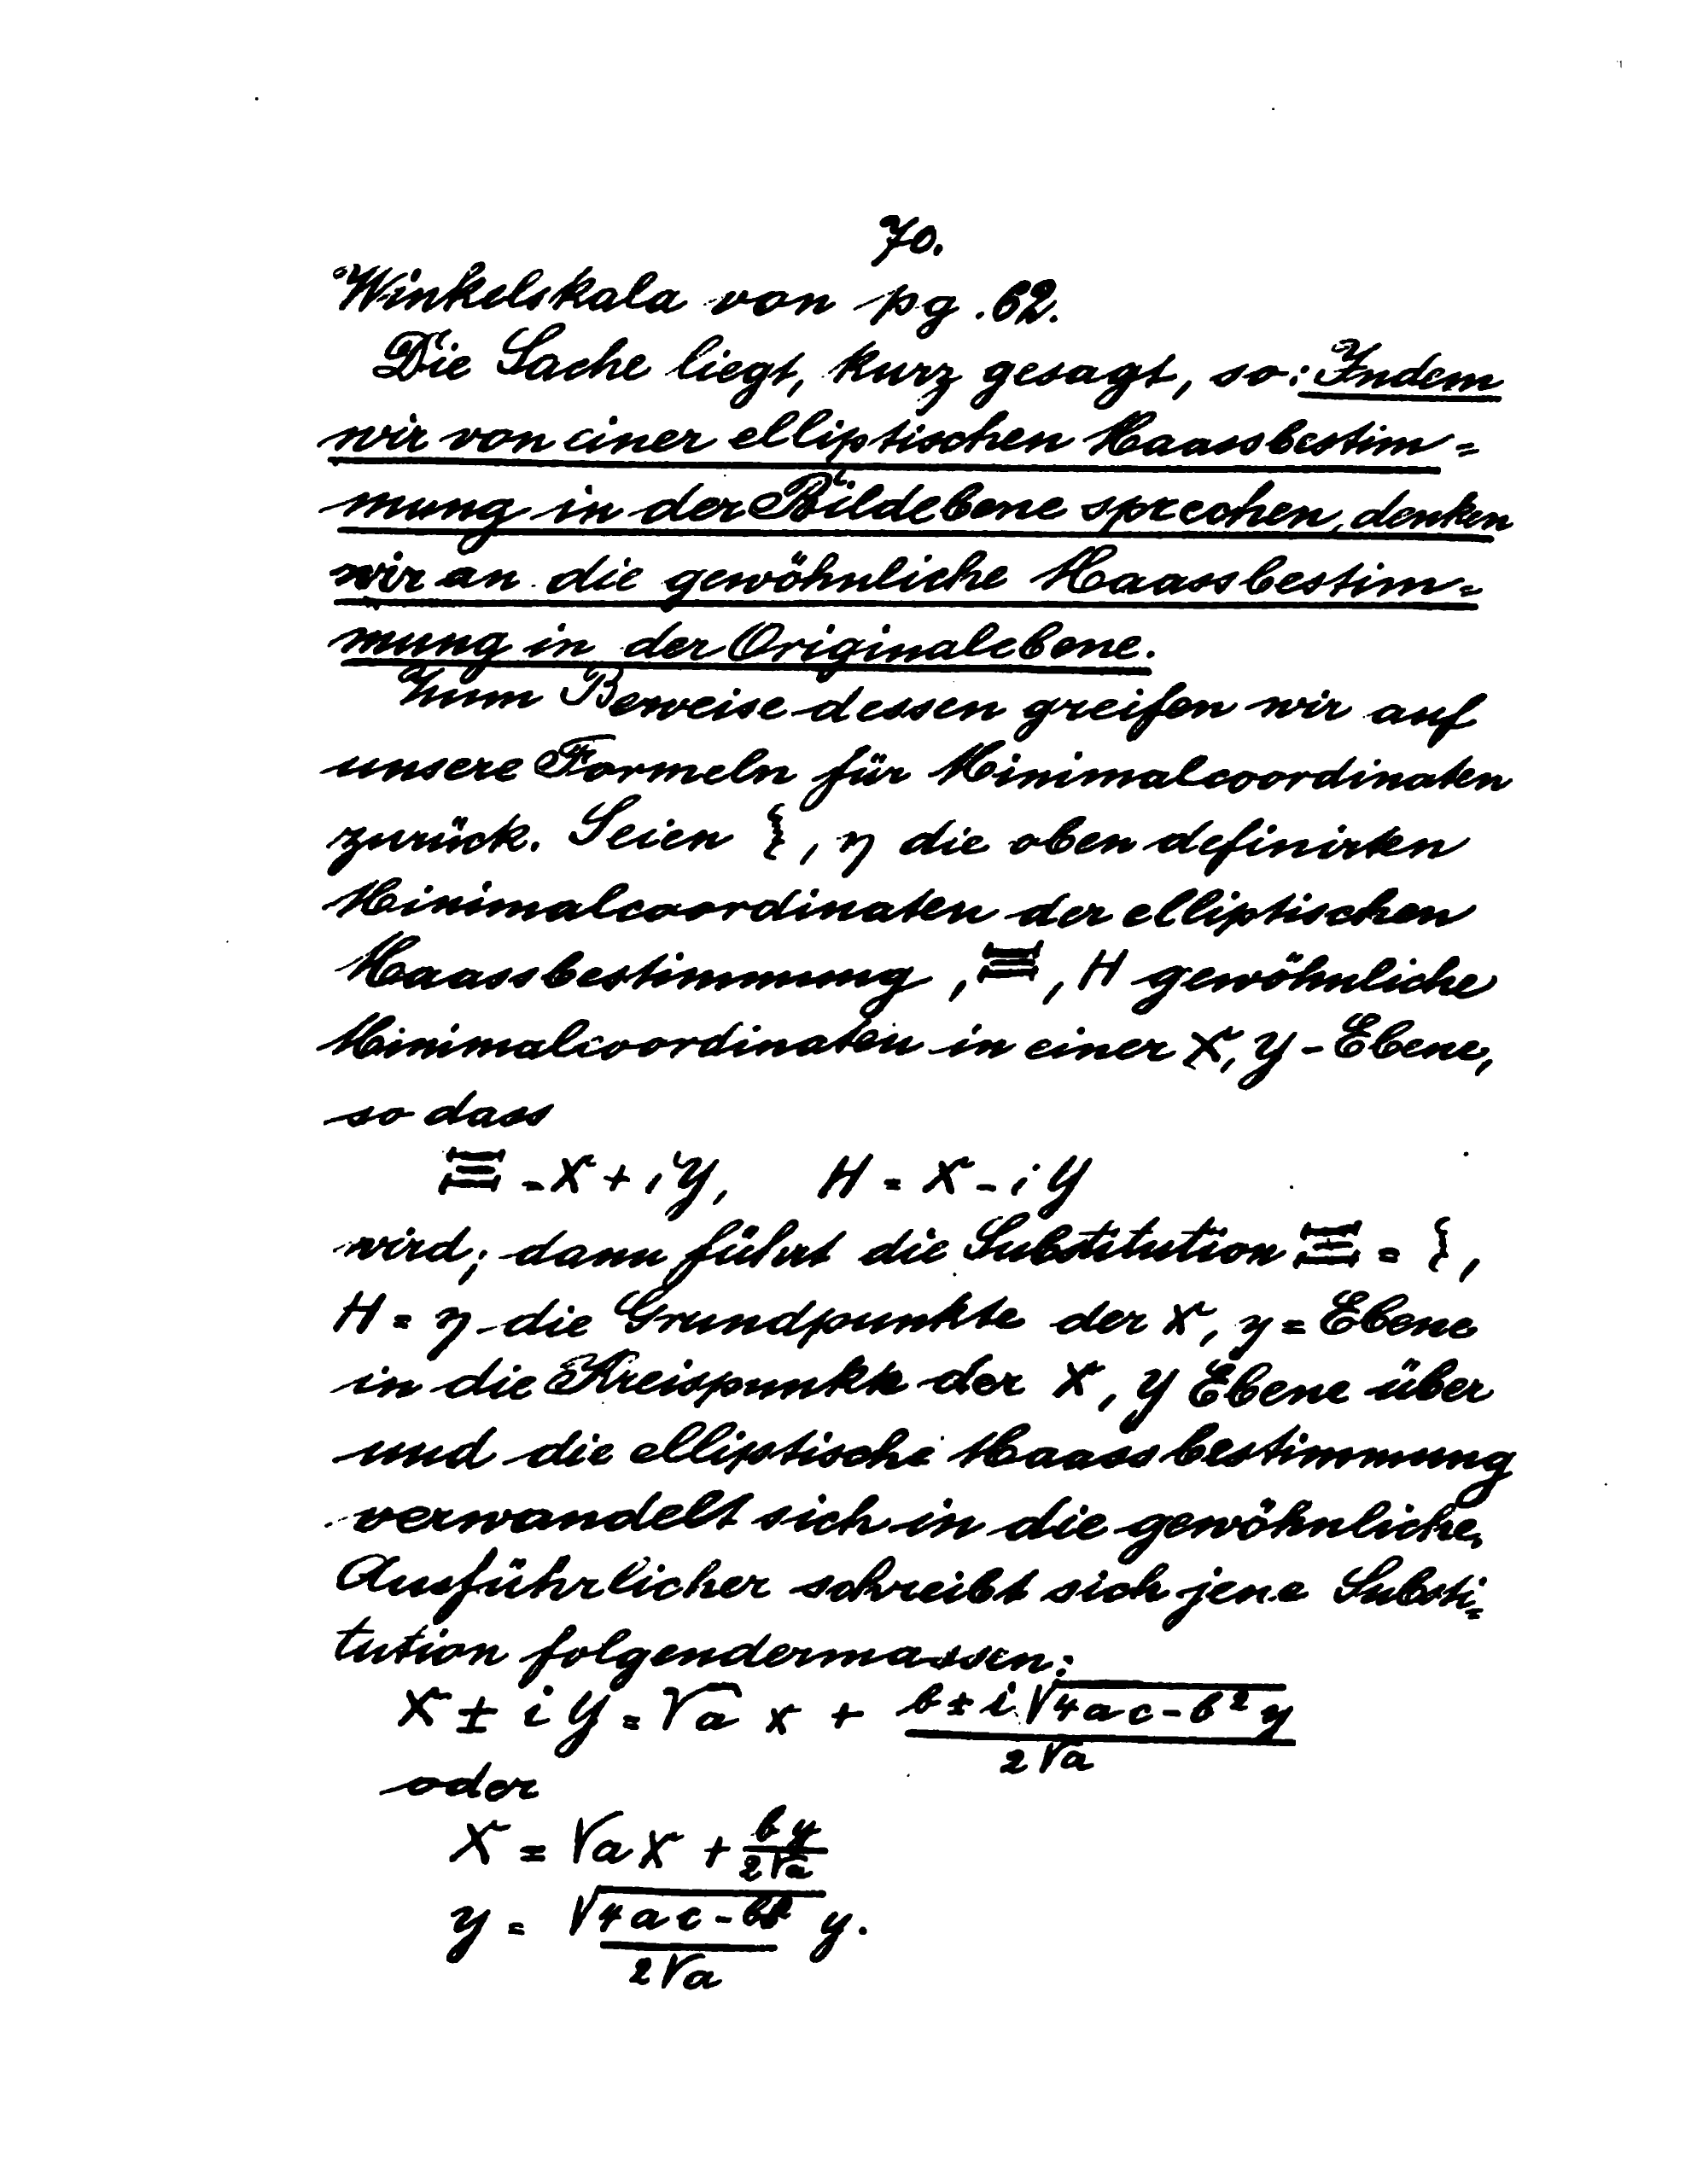 70.
Winkelskala von pg. 62.
Die Sache liegt, kurz gesagt, so: Indem
wir von einer elliptischen Maassbestim=
mung in der Bildebene sprechen, denken
wir an die gewöhnliche Maassbestim=
mung in der Originalebene.
Zum Beweise dessen greifen wir auf
unsere Formeln für Minimalcoordinaten
zurück. Seien ξ, η die oben definirten
Minimalcoordinaten der elliptischen
Maassbestimmung, Ξ, H gewöhnliche
Minimalcoordinaten in einer X, Y-Ebene,
so dass
Ξ = X + iY, H = X - iY
wird; dann führt die Substitution Ξ = ξ,
H = η die Grundpunkte der x, y = Ebene
in die Kreispunkte der X, Y Ebene über
und die elliptische Maassbestimmung
verwandelt sich in die gewöhnliche.
Ausführlicher schreibt sich jene Substi=
tution folgendermassen:
X ± iY = √a x + (b ± i√(4ac-b²) y)/(2√a)
oder
X = √a x + by/(2√a)
Y = √(4ac-b²)/(2√a) y.